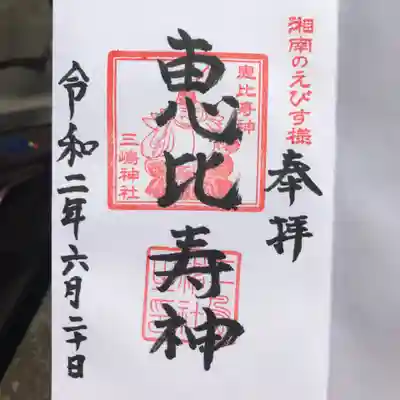 湘南のえびす様
奉拝
恵比寿神
恵比寿神
三嶋神社
令和二年六月二十日